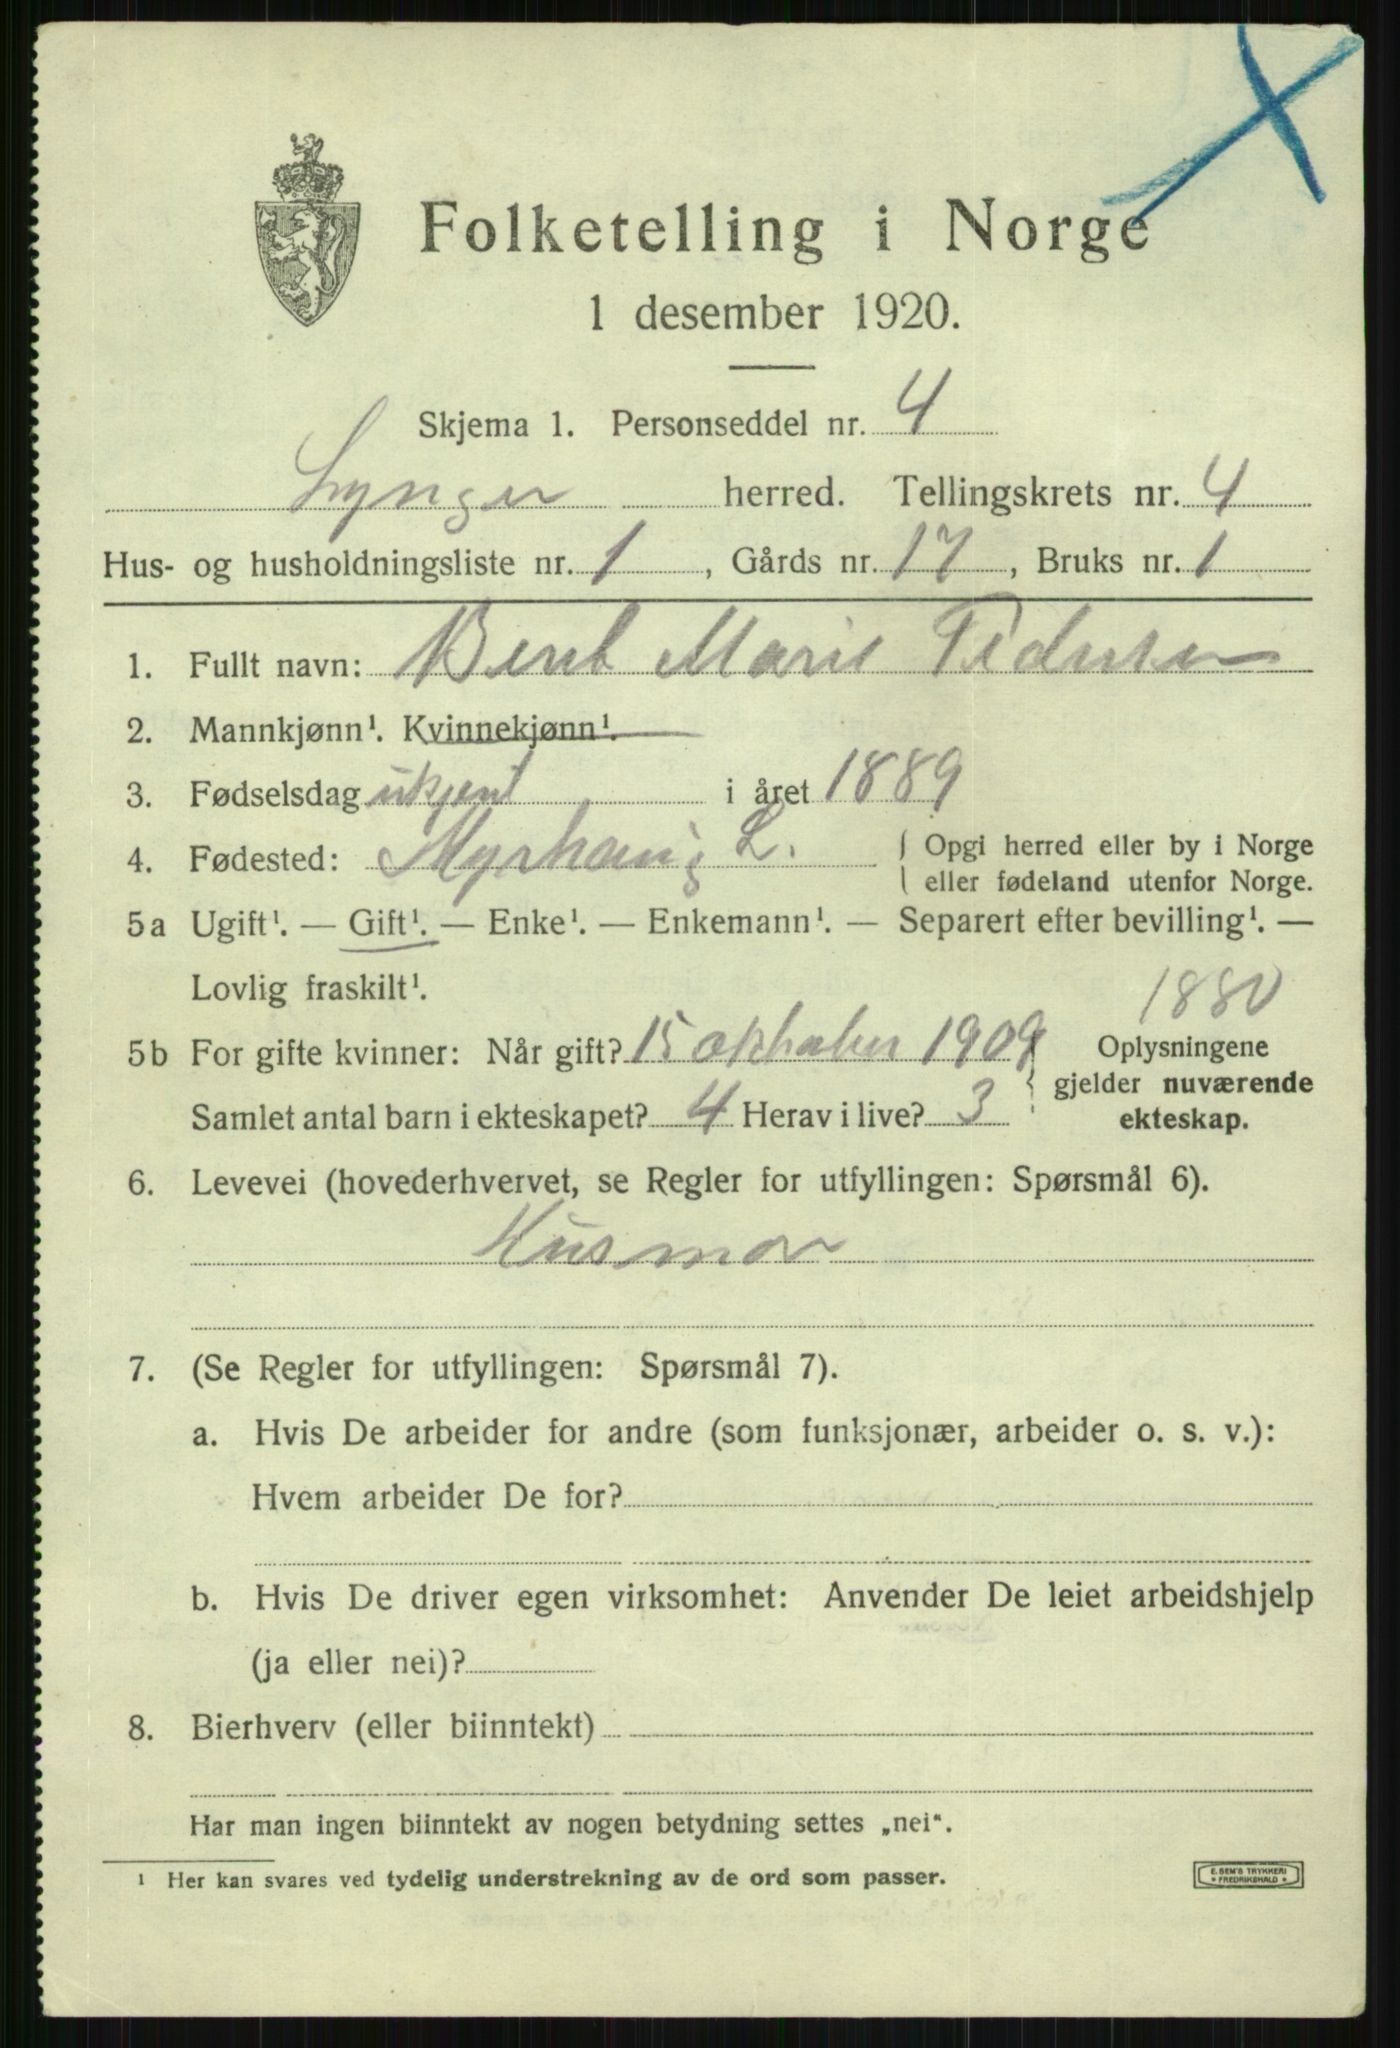 Folketelling i Norge
1 desember 1920.
Skjema 1. Personseddel nr. 4
Lyngen herred. Tellingskrets nr. 4
Hus- og husholdningsliste nr. 1, Gårds nr. 17, Bruks nr. 1
1. Fullt navn: Berit Marie Pedersen
2. Mannkjønn¹. Kvinnekjønn¹.
3. Fødselsdag ukjent i året 1889
4. Fødested: Myrhaug L. { Opgi herred eller by i Norge
eller fødeland utenfor Norge.
5a Ugift¹. — Gift¹. — Enke¹. — Enkemann¹. — Separert efter bevilling¹. —
Lovlig fraskilt¹.
1880
5b For gifte kvinner: Når gift? 15 oktober 1909 { Oplysningene
gjelder nuværende
Samlet antal barn i ekteskapet? 4 Herav i live? 3 ekteskap.
6. Levevei (hovederhvervet, se Regler for utfyllingen: Spørsmål 6).
Husmor
7. (Se Regler for utfyllingen: Spørsmål 7).
a. Hvis De arbeider for andre (som funksjonær, arbeider o. s. v.):
Hvem arbeider De for?
b. Hvis De driver egen virksomhet: Anvender De leiet arbeidshjelp
(ja eller nei)?
8. Bierhverv (eller biinntekt)
Har man ingen biinntekt av nogen betydning settes „nei“.
¹ Her kan svares ved tydelig understrekning av de ord som passer.
E. SEM'S TRYKKERI
FREDRIKSHALD